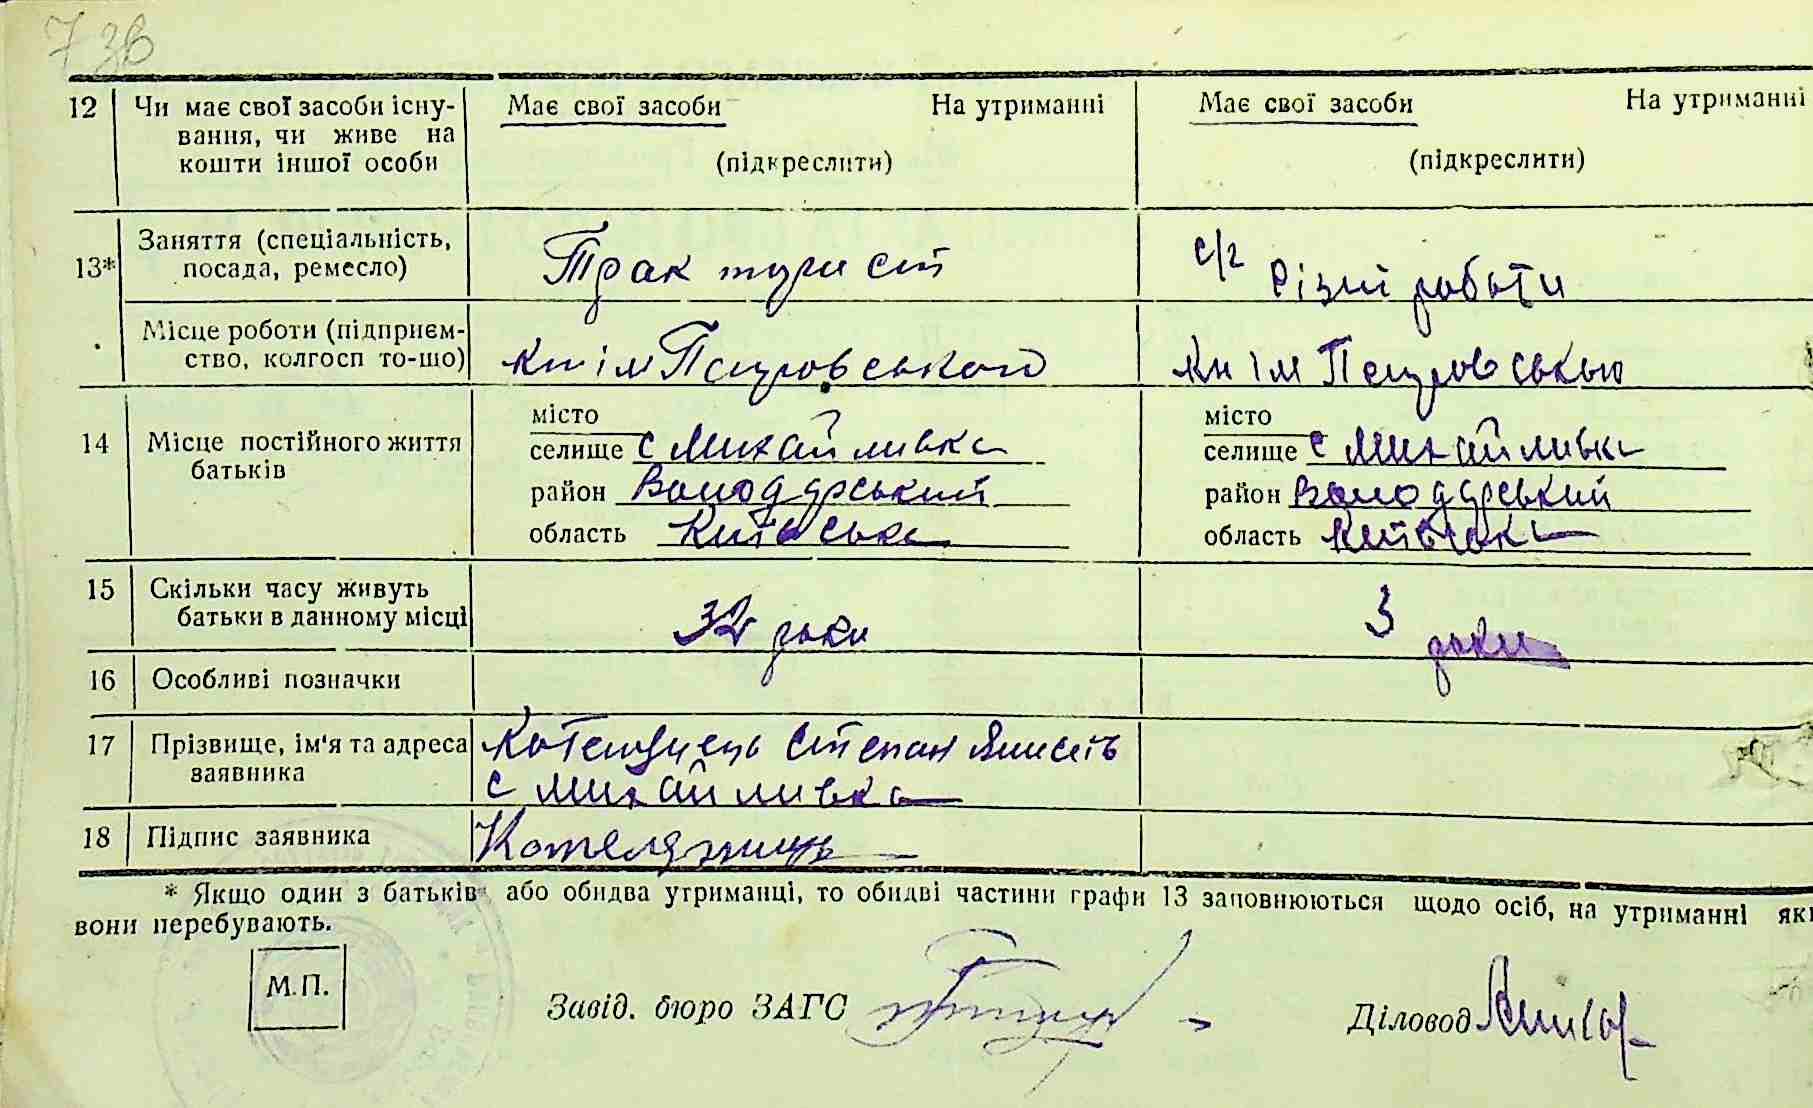 73в
12 Чи має свої засоби існу- Має свої засоби На утриманні Має свої засоби На утриманні
вання, чи живе на
кошти іншої особи (підкреслити) (підкреслити)
13* Заняття (спеціальність, Тракторист с/г різні роботи
посада, ремесло)
Місце роботи (підприєм- кт ім Петровського Кн ім Петровського
ство, колгосп то-що)
14 Місце постійного життя місто місто
батьків селище с Михайливка селище с Михайливка
район Володарський район Володарський
область Київська область Київська
15 Скільки часу живуть 32 роки 3 роки
батьки в данному місці
16 Особливі позначки
17 Прізвище, ім'я та адреса Степан
заявника с Михайливка
18 Підпис заявника
* Якщо один з батьків або обидва утриманці, то обидві частини графи 13 заповнюються щодо осіб, на утриманні яки
вони перебувають.
М.П. Завід. бюро ЗАГС Діловод